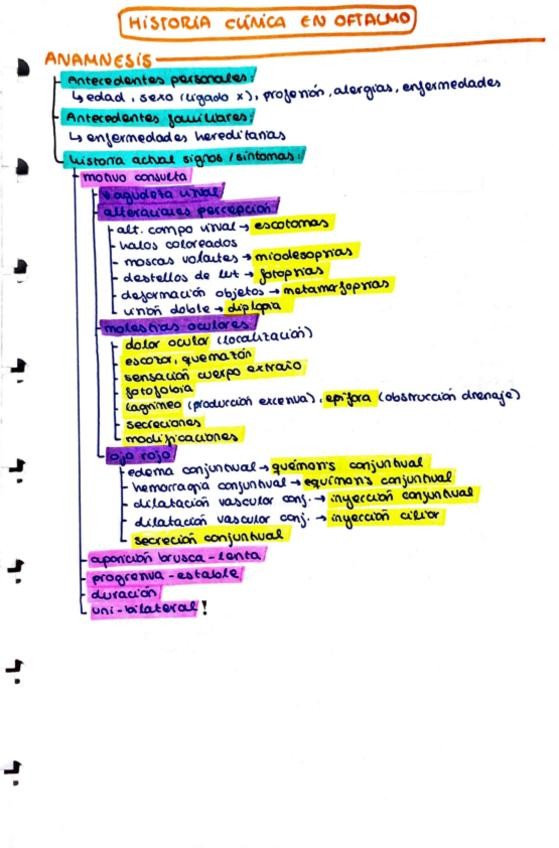 HISTORIA CLÍNICA EN OFTALMO
ANAMNESIS
Antecedentes personales:
↳ edad, sexo (ligado x), profesión, alergias, enfermedades
Antecedentes familiares:
↳ enfermedades hereditarias
Historia actual signos/síntomas:
motivo consulta
agudeza visual
alteraciones percepción
alt. campo visual → escotomas
halos coloreados
moscas volantes → miodesopsias
destellos de luz → fotopsias
deformación objetos → metamorfopsias
visión doble → diplopia
molestias oculares
dolor ocular (localización)
escozor, quemazón
sensación cuerpo extraño
fotofobia
lagrimeo (producción excesiva), epifora (obstrucción drenaje)
secreciones
modificaciones
ojo rojo
edema conjuntival → quemosis conjuntival
hemorragia conjuntival → equimosis conjuntival
dilatación vascular conj. → inyección conjuntival
dilatación vascular conj. → inyección ciliar
secreción conjuntival
aparición brusca - lenta
progresiva - estable
duración
uni - bilateral!